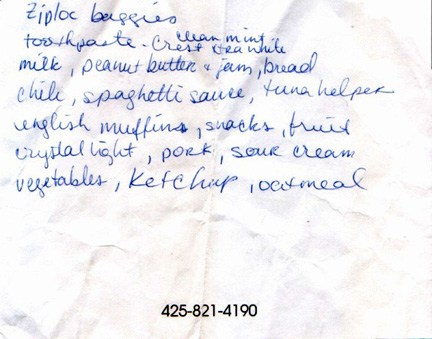 Ziploc baggies
clean mint
toothpaste - Crest extra white
milk, peanut butter & jam, bread
chili, spaghetti sauce, tuna helper
english muffins, snacks, fruit
crystal light, pork, sour cream
vegetables, Ketchup, oatmeal
425-821-4190